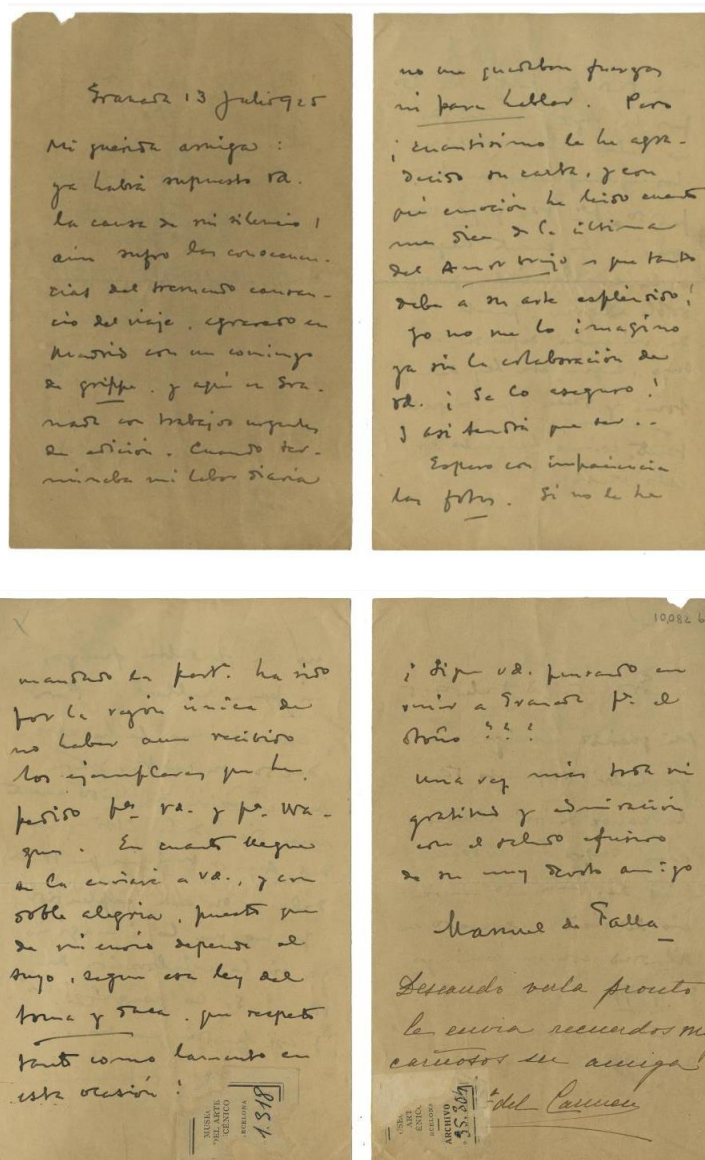 Granada 13 julio 925
Mi querida amiga :
ya habrá supuesto vd.
la causa de mi silencio !
aún sufro las consecuen-
cias del tremendo cansan-
cio del viaje, agravado en
Madrid con un comingo
de grippe. y aquí en Gra-
nada con trabajos urgentes
de edición. Cuando ter-
minaba mi labor diaria
no me quedaban fuerzas
ni para hablar. Pero
¡ cuantísimo le he agra-
decido su carta, y con
qué emoción he leido cuanto
me dice de la última
del Amor brujo a que tanto
debe a su arte espléndido !
Yo no me lo imagino
ya sin la colaboración de
vd. ¡ Se lo aseguro !
Y así tendrá que ser . .
Espero con impaciencia
las fotos. Si no le he
mandado la part. ha sido
por la razón única de
no haber aun recibido
los ejemplares que he
pedido pª vd. y pª Wa-
gues. En cuanto llegue
se la enviaré a vd., y con
doble alegria, puesto que
de mi envio depende el
suyo, segun esa ley del
toma y daca, que respeto
tanto como lamento en
esta ocasión !
MUSEU
DEL ARTE
ESCÉNICO
BARCELONA
1.318
10.082
¿ Sigue vd. pensando en
venir a Granada pª el
otoño ? ! ?
Una vez más toda mi
gratitud y admiración
con el saludo efusivo
de su muy devoto amigo
Manuel de Falla
Deseando verla pronto
le envia recuerdos m
cariñosos su amiga
ª del Carmen
ARCHIVO
55.304